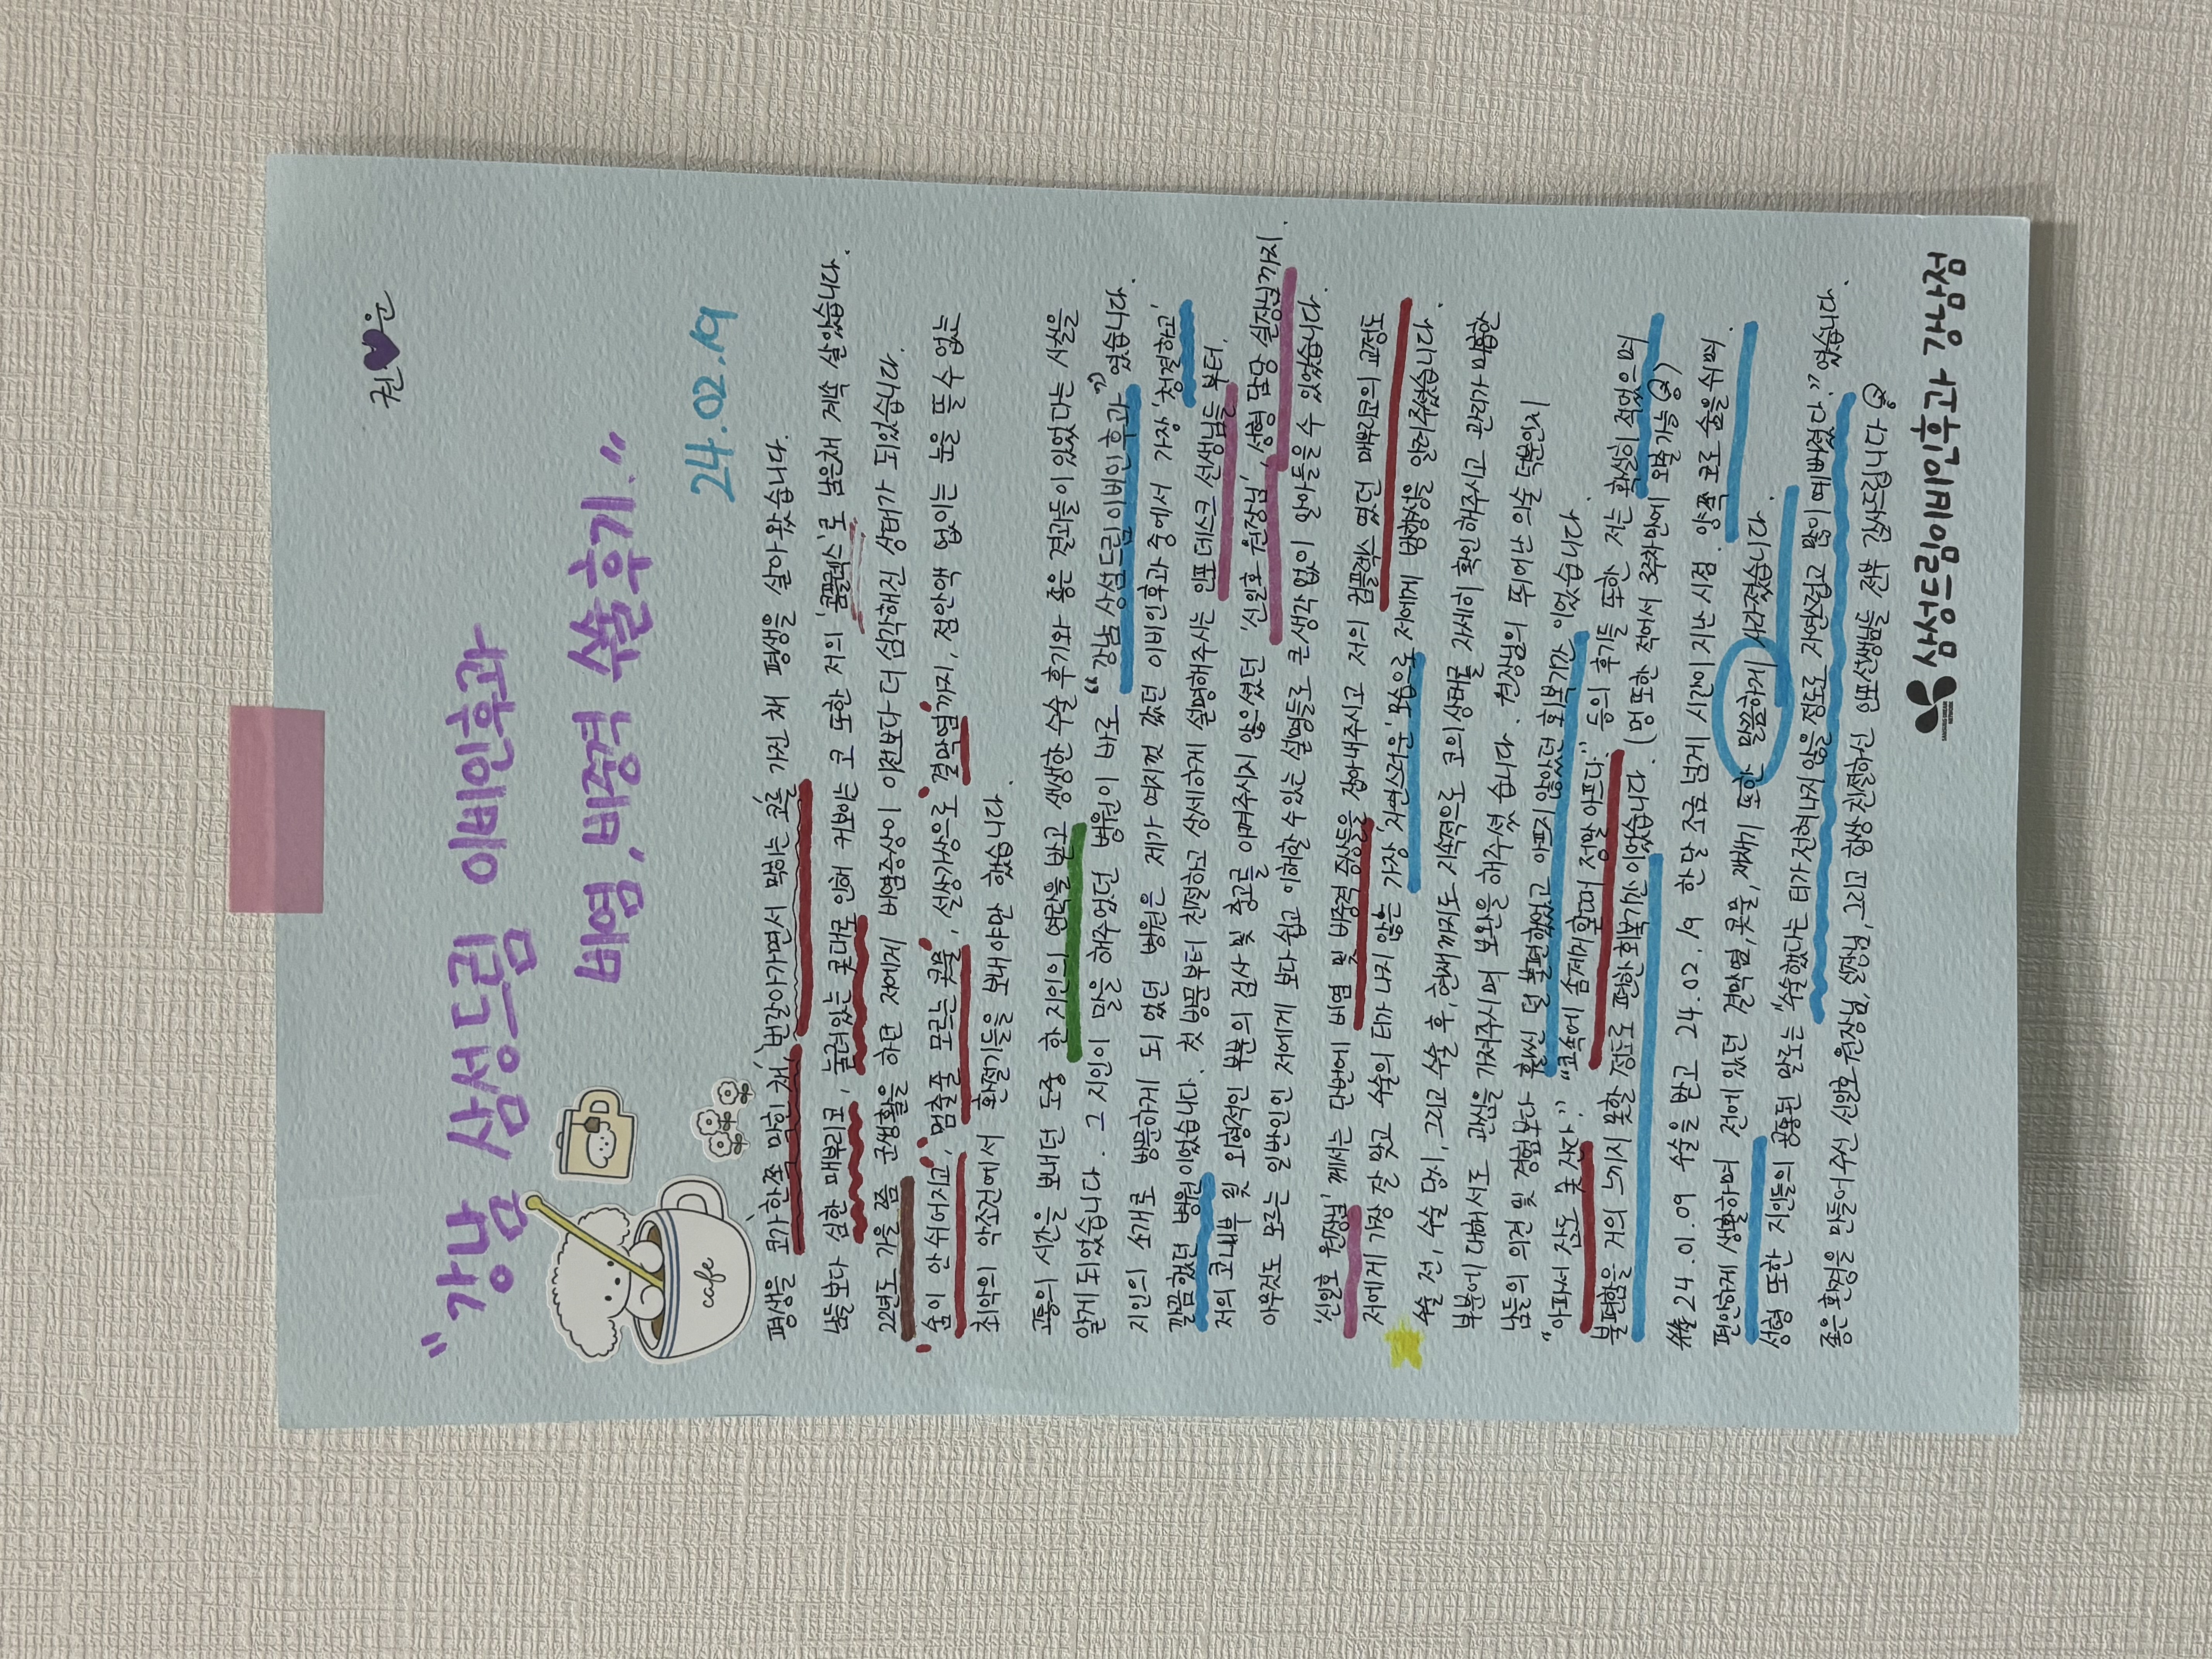 권♥운
"강남 삼성드림 이비인후과
비염, 비중격 수술후기."
24.02.19
cafe
평생을 코가 한쪽 막힌 채, 번갈아가면서 막히는 코를 가진 채 평생을 살아왔습니다.
남들보다 심한 매부리코, 눌려있는 콧대로 인해 커보이는 코 또한 저의 '콤플렉스'로 남은채 계속 살았습니다.
22년도 가을 쯤 군생활을 하던 저에게 비염증상이 이전보다 더 심각해진 상태가 되었습니다.
'숨이 안 쉬어지고,' '멈출줄 모르는 콧물', 설상가상으로 '결막염'까지, 점안액 없이는 눈을 뜰 수 없는
최악의 악조건에서 환절기들을 보내야만 했습니다.
고통의 시간을 보내던 도중 한 지인의 연락을 받고 생생한 수술 후기와 좋은 결과들이 있었다는 사실을
알게 되었습니다. 그 지인이 말을 해주었던 병원이 바로 "강남 삼성드림 이비인후과" 였습니다.
지인의 소개로 방문하게 되었던 병원은 제가 여지껏 갔던 이비인후과 중에서 가장 '청결하고',
깔끔했던 병원이었습니다. 첫 방문부터 친절하고 상세하게 설명해주시는 인포데스크 선생님들 부터,
저의 코내부 및 외형적인 부분의 검사 및 충고를 아껴주시지 않으셨던 '신일호 원장님', 성형 담당 실장님까지
아무것도 모르는 일반인인 저에게 보다 쉽고 이해할 수 있는 설명들로 큰 생각없이 알아들을 수 있었습니다.
'신일호 원장님' 께서는 단번에 비염 및 비중격 증상들을 잡아내주시고 저의 컴플렉스 였던 매부리코의 교정도
저에게 가장 잘 맞고 수술의 티가 나지 않는 가장 '자연스러운' 모습으로 저에게 방향성을 알려주셨습니다.
수술 전, 수술 당시, 그리고 수술 후, 현재까지도 지속적으로 코의 상태를 자세히 확인해주시고 관리가 미흡한
부분에 대해서도 관심을 가져주시며 보완을 해주셨습니다. 원장님의 뛰어난 의술 덕분인지
남들의 의견 및 경험보다 훨씬 덜 불편했었고 아프지 않았던 회복기간 이었습니다.
"아파서 잠도 못 잔다." "코속에 솜제거할때 정말 아프다." 등의 후기들 또한 저는 확실히 적었으며
불편함을 거의 느끼지 못할 정도로 편한 회복기간 이었습니다. (멍 또한 적어서 3주차만에 외출가능
수술 24.01.09 수술을 받고 24.02.19 한 달 조금 넘게 시간이 지난 시점. 양쪽 코로 숨을 쉬며
편안하게 생활하며 전에 있던 결막염, 콧물, 재채기 또한 말끔하게 사라졌습니다.
성형 또한 지인들의 공통된 말로는 "수술했다는 티가 전혀나지 않을 정도로 자연스럽고 예쁘게 잘됐다" 였습니다.
좋은 환경을 만들어주신 신일호 원장님, 실장님, 그리고 항상 친절하신 인포선생님들 전부 감사드립니다
삼성드림이비인후과 강남점